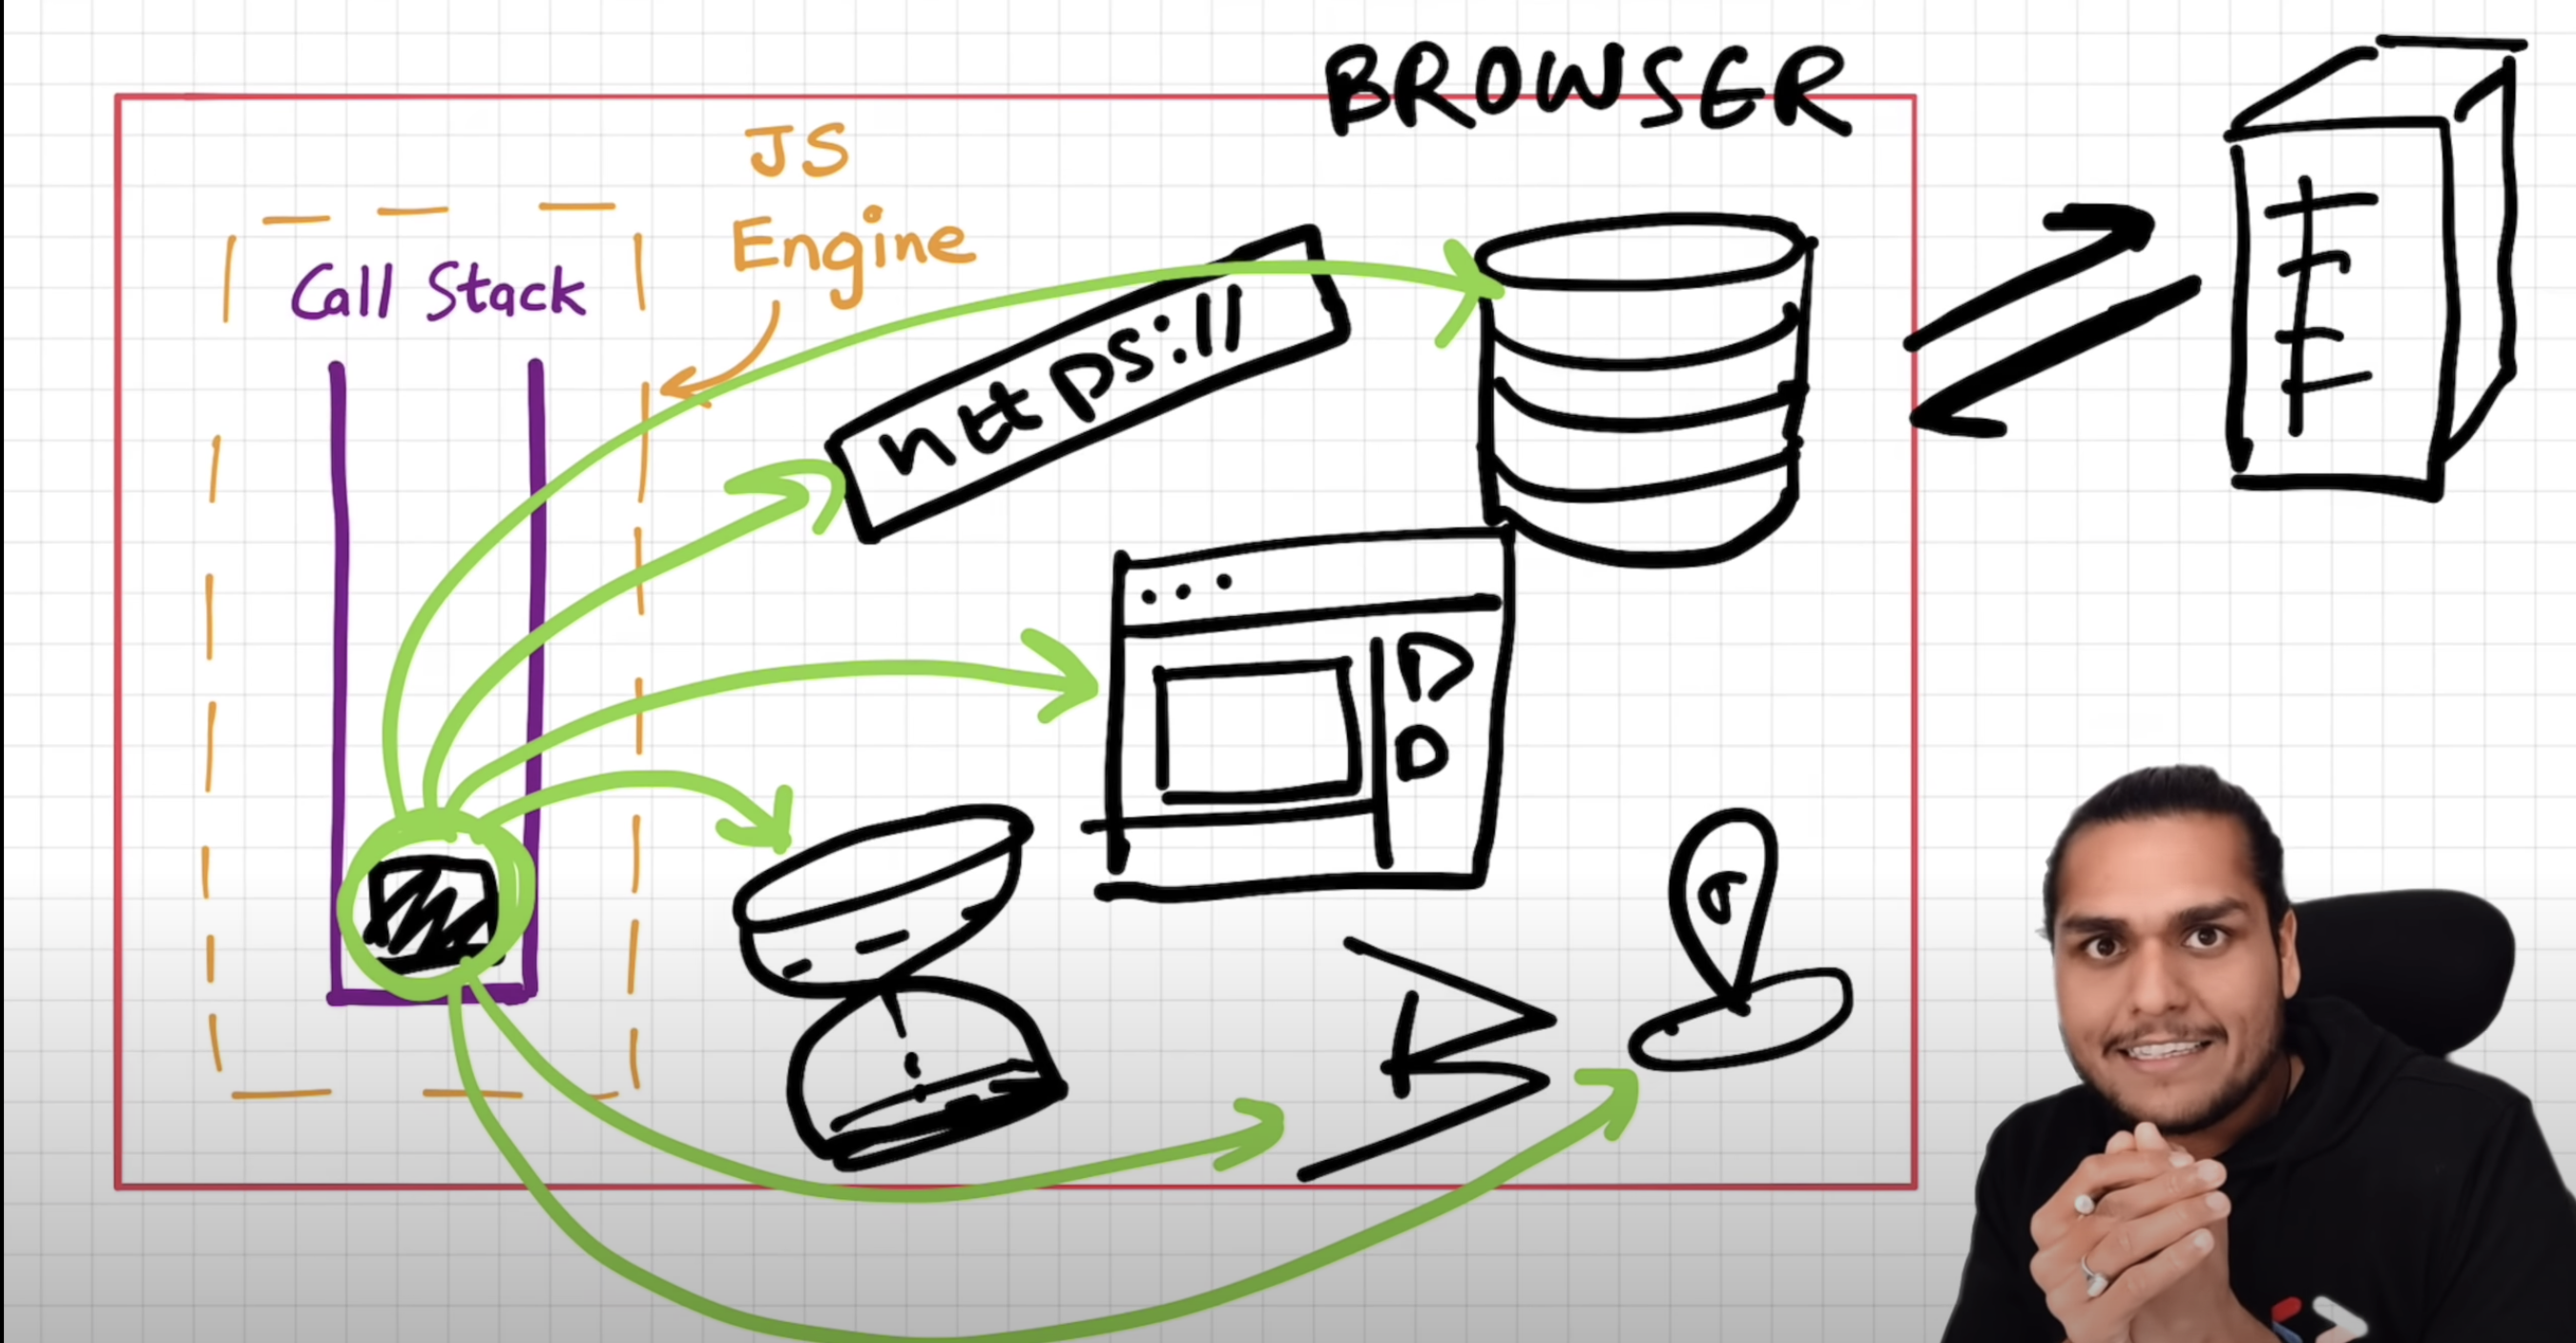 BROWSER
JS
Engine
Call Stack
https://
D
D
B